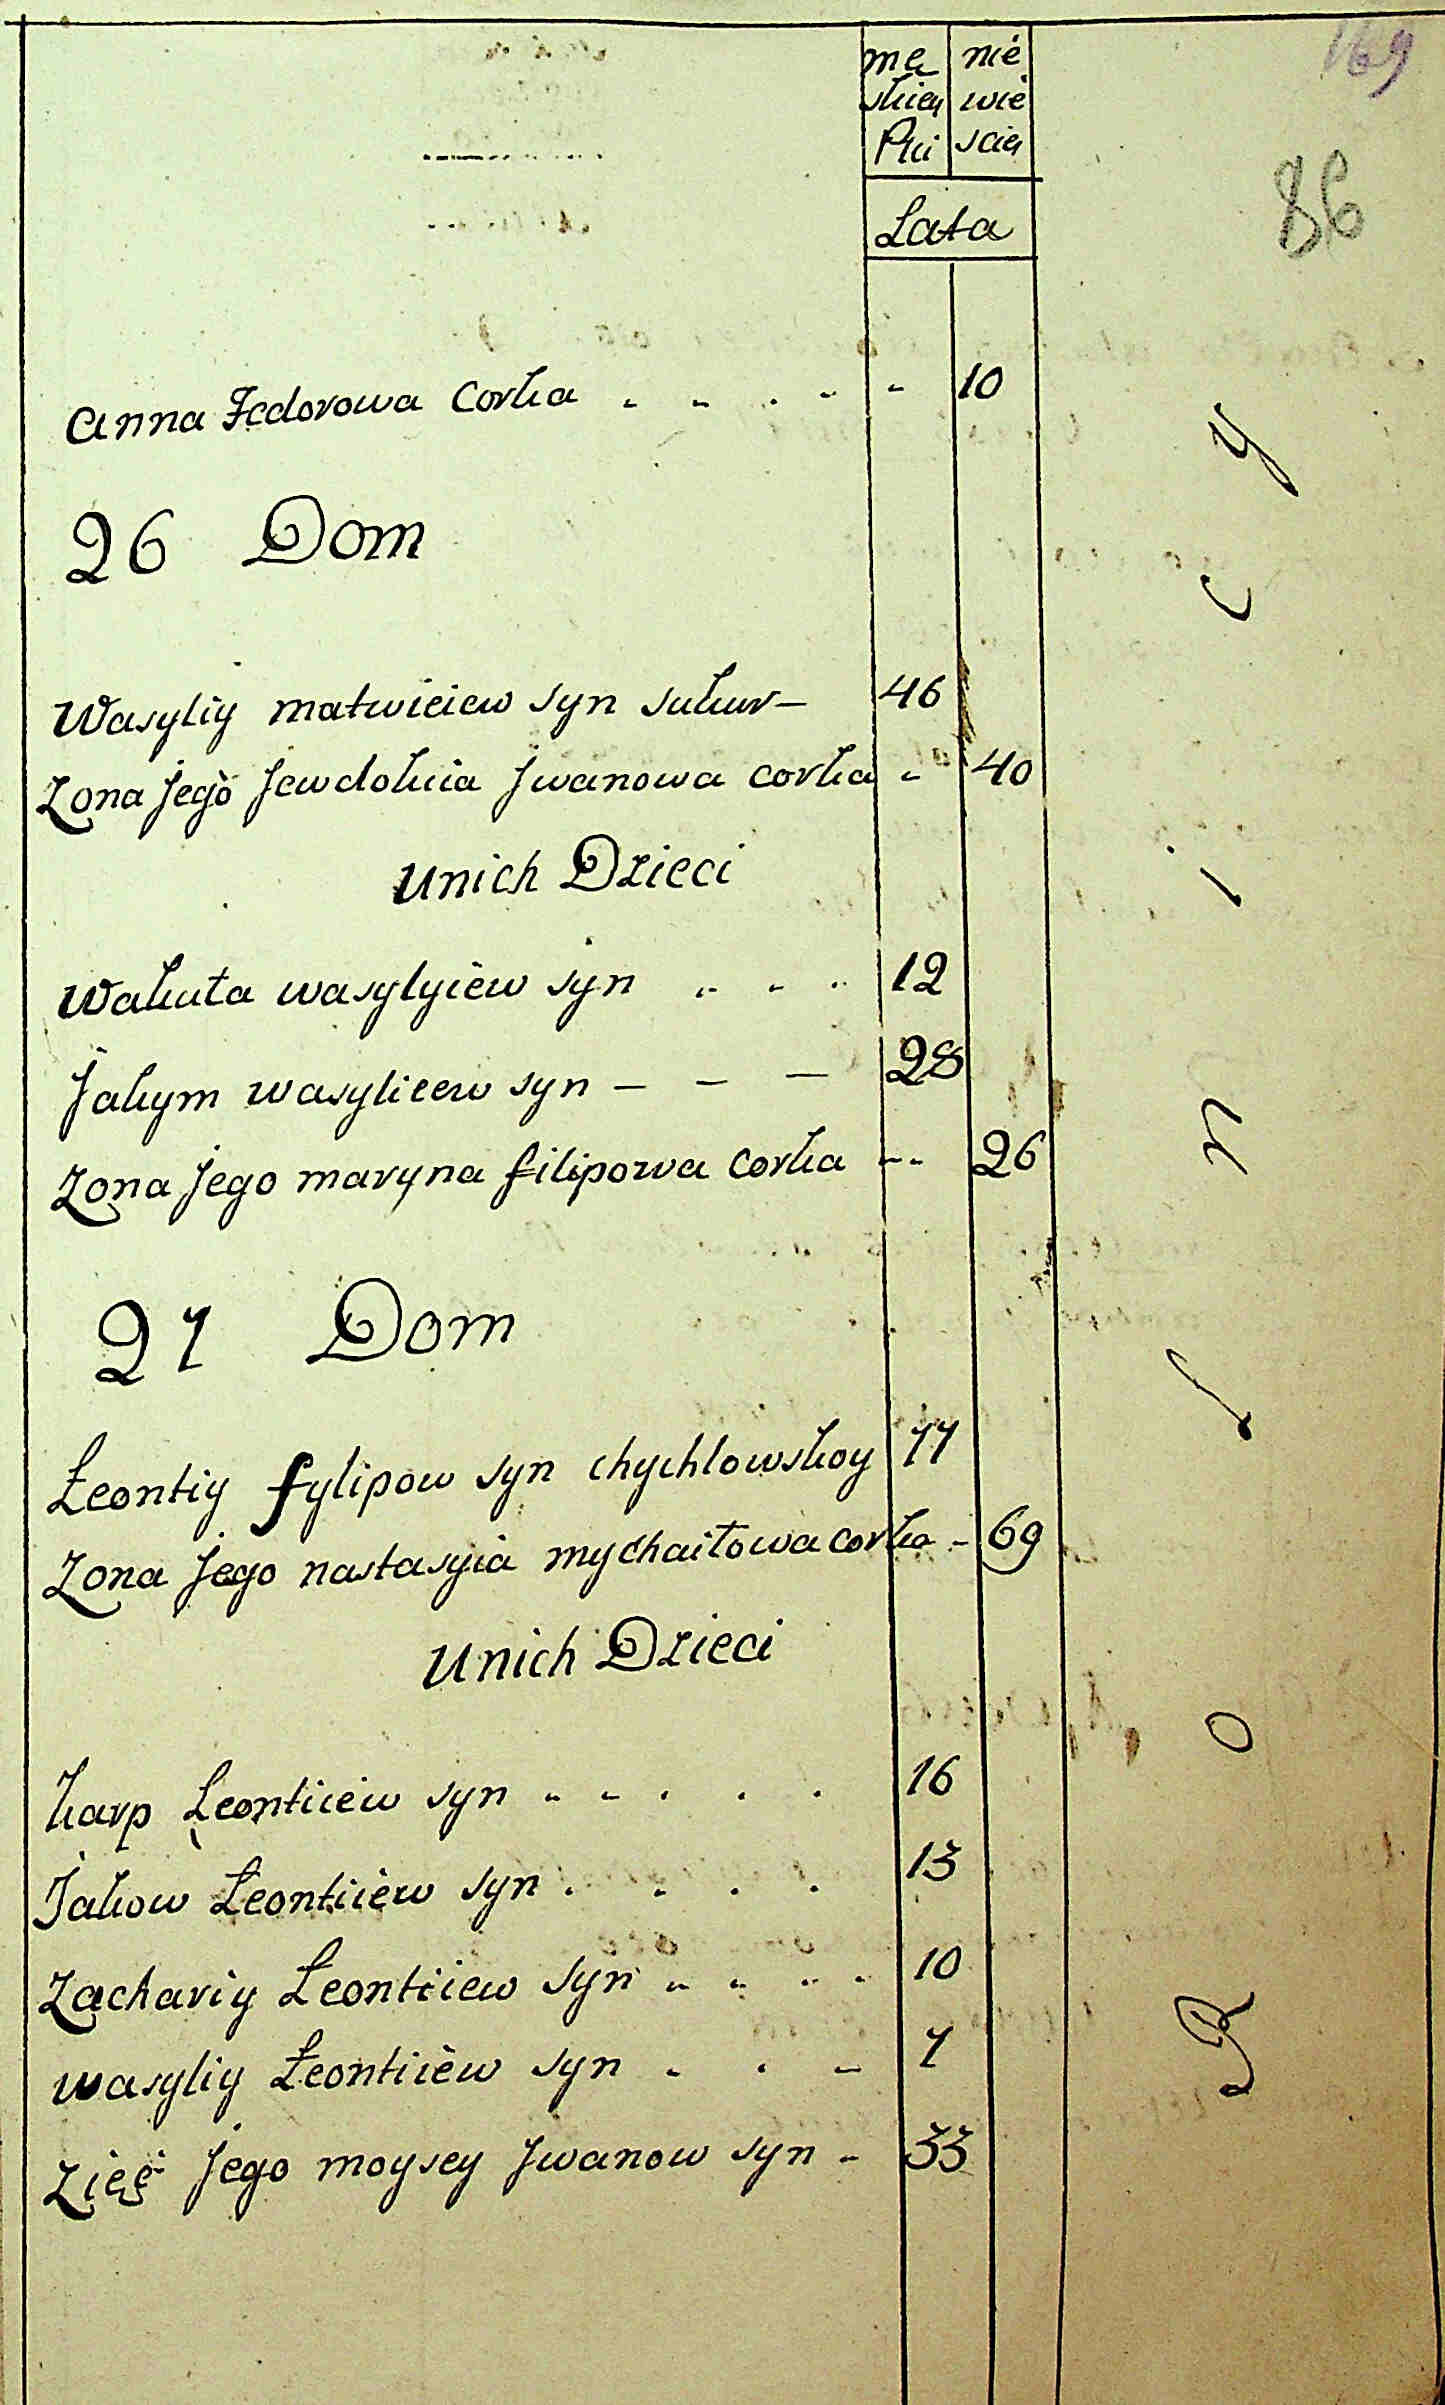 169
86
mę nie
skiey wie
Płci sciey
Lata
Anna Fedorowa Corka - - - - - 10
26 Dom
Wasyliy matwieiew syn sukur - 46
Zona Jego Jewdokia Jwanowa corka - 40
unich Dzieci
Wakuła wasylyiew syn - - - 12
Jakym wasyliew syn - - - 28
Zona Jego maryna filipowa Corka -- 26
27 Dom
Łeontiy fylipow syn chychlowskoy 77
Zona Jego nastasyia mychaiłowa corka - 69
unich Dzieci
karp Łeontiiew syn - - . . . 16
Jakow Łeontiiew syn . . . . 13
Zachariy Łeontiiew syn - - - - 10
wasyliy Łeontiiew syn - . - 7
Zięć Jego moysey Jwanow syn - 33
R o l n i c y